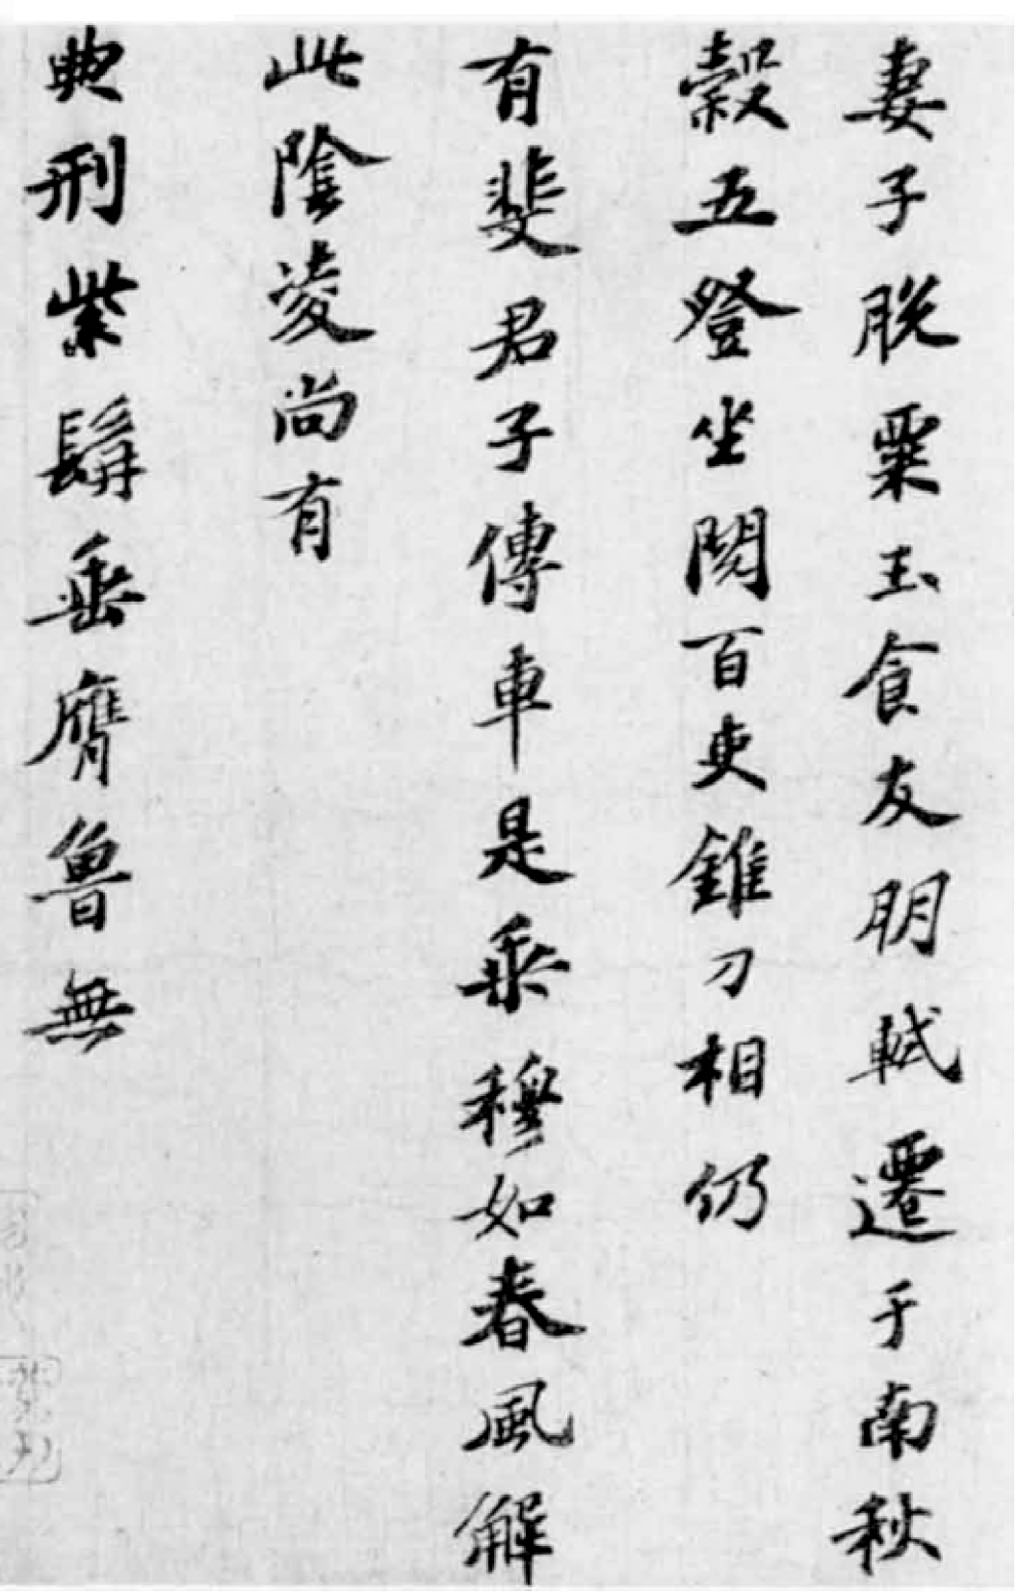 妻子脫粟玉食友朋軾遷于南秋
穀五登坐閱百吏錐刀相仍
有斐君子傳車是乘穆如春風解
此陰凌尚有
典刑紫髯垂膺魯無